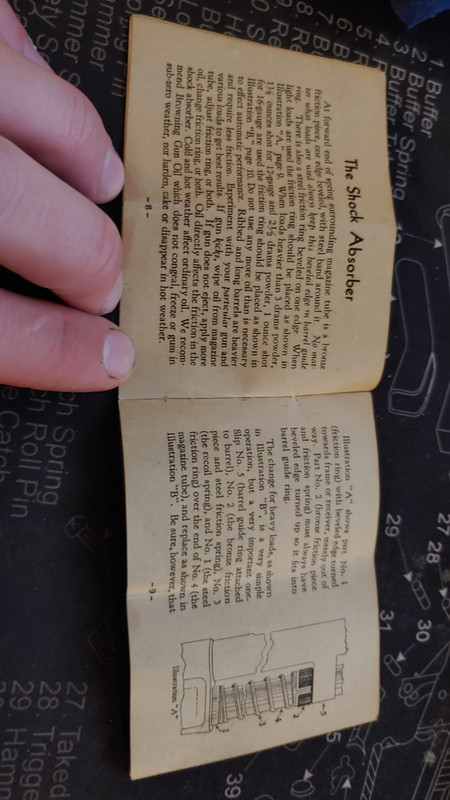 The Shock Absorber
At forward end of spring surrounding magazine tube is a bronze
friction piece, one edge beveled, with steel band around it. No mat-
ter what loads are used always keep this beveled edge in barrel guide
ring. There is also a steel friction ring beveled on one edge. When
light loads are used the friction ring should be placed as shown in
Illustration "A," page 9. When loads heavier than 3 drams powder,
1⅛ ounces shot for 12-gauge and 2½ drams powder, 1 ounce shot
for 16-gauge are used the friction ring should be placed as shown in
Illustration "B," page 10. Do not use any more oil than is necessary
to effect automatic performance. Ribbed and long barrels are heavier
and require less friction. Experiment with your particular gun and
various loads to get best results. If gun kicks, wipe oil from magazine
tube, adjust friction ring, or both. If gun does not eject, apply more
oil, change friction ring, or both. Oil directly affects the friction in the
shock absorber. Cold and hot weather affect ordinary oil. We recom-
mend Browning Gun Oil which does not congeal, freeze or gum in
sub-zero weather, nor harden, cake or disappear in hot weather.
- 8 -
Illustration "A" shows Part No. 1
(friction ring) with beveled edge turned
towards frame or receiver, merely out of
way. Part No. 2 (bronze friction piece
and friction spring) must always have
beveled edge turned up so it fits into
barrel guide ring.
The change for heavy loads, as shown
in Illustration "B", is a very simple
operation, but a very important one.
Slip No. 5 (barrel guide ring attached
to barrel), No. 2 (the bronze friction
piece and steel friction spring), No. 3
(the recoil spring), and No. 1 (the steel
friction ring) over the end of No. 4 (the
magazine tube), and replace as shown in
Illustration "B". Be sure, however, that
5
2
4
3
1
Illustration "A"
- 9 -
1. Buffer
2. Buffer Spring
27
28
29
30
31
39
27. Taked
28. Trigge
29. Hamm